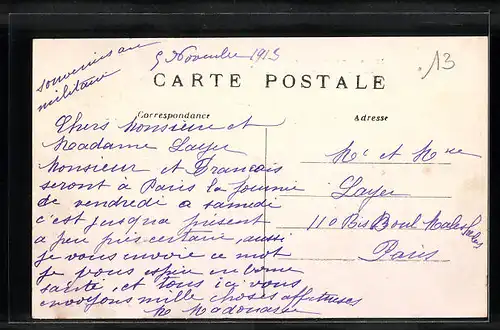 souvenirs au
militaire
5 Novembre 1915
13
CARTE POSTALE
Correspondance
Adresse
Chers Monsieur et
Madame Layer
Monsieur et Francois
seront à Paris la journée
de vendredi a samedi
c'est jusqua présent
a peu près certain, aussi
je vous envoie ce mot
je vous espère en bonne
santé, et tous ici vous
envoyons mille choses affectueuses
Mr et Mme
Layer
110 Bis Boul Malesherbes
Paris